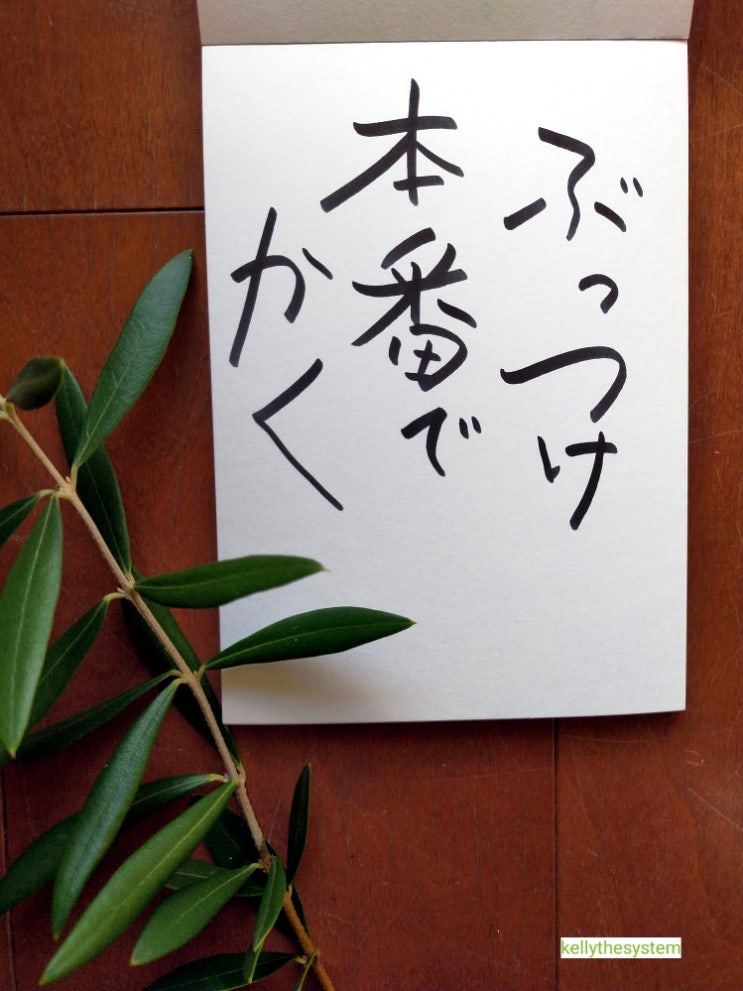 ぶっつけ
本番で
かく
kellythesystem